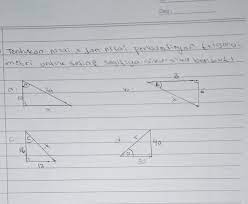 Tentukan nilai x dan nilai perbandingan trigono-
metri untuk setiap segitiga siku-siku berikut!
a.
10
x
b.
8
6
x
c.
16
x
12
d.
x
40
30